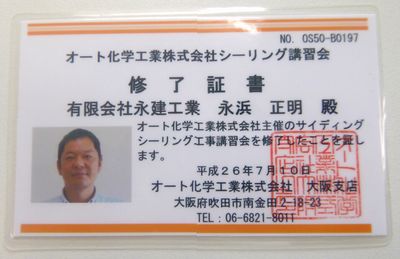 NO. OS50-B0197
オート化学工業株式会社シーリング講習会
修了証書
有限会社永建工業 永浜 正明 殿
オート化学工業株式会社主催のサイディング
シーリング工事講習会を修了したことを証し
ます。
平成26年7月10日
オート化学工業株式会社 大阪支店
大阪府吹田市南金田2-18-23
TEL:06-6821-8011